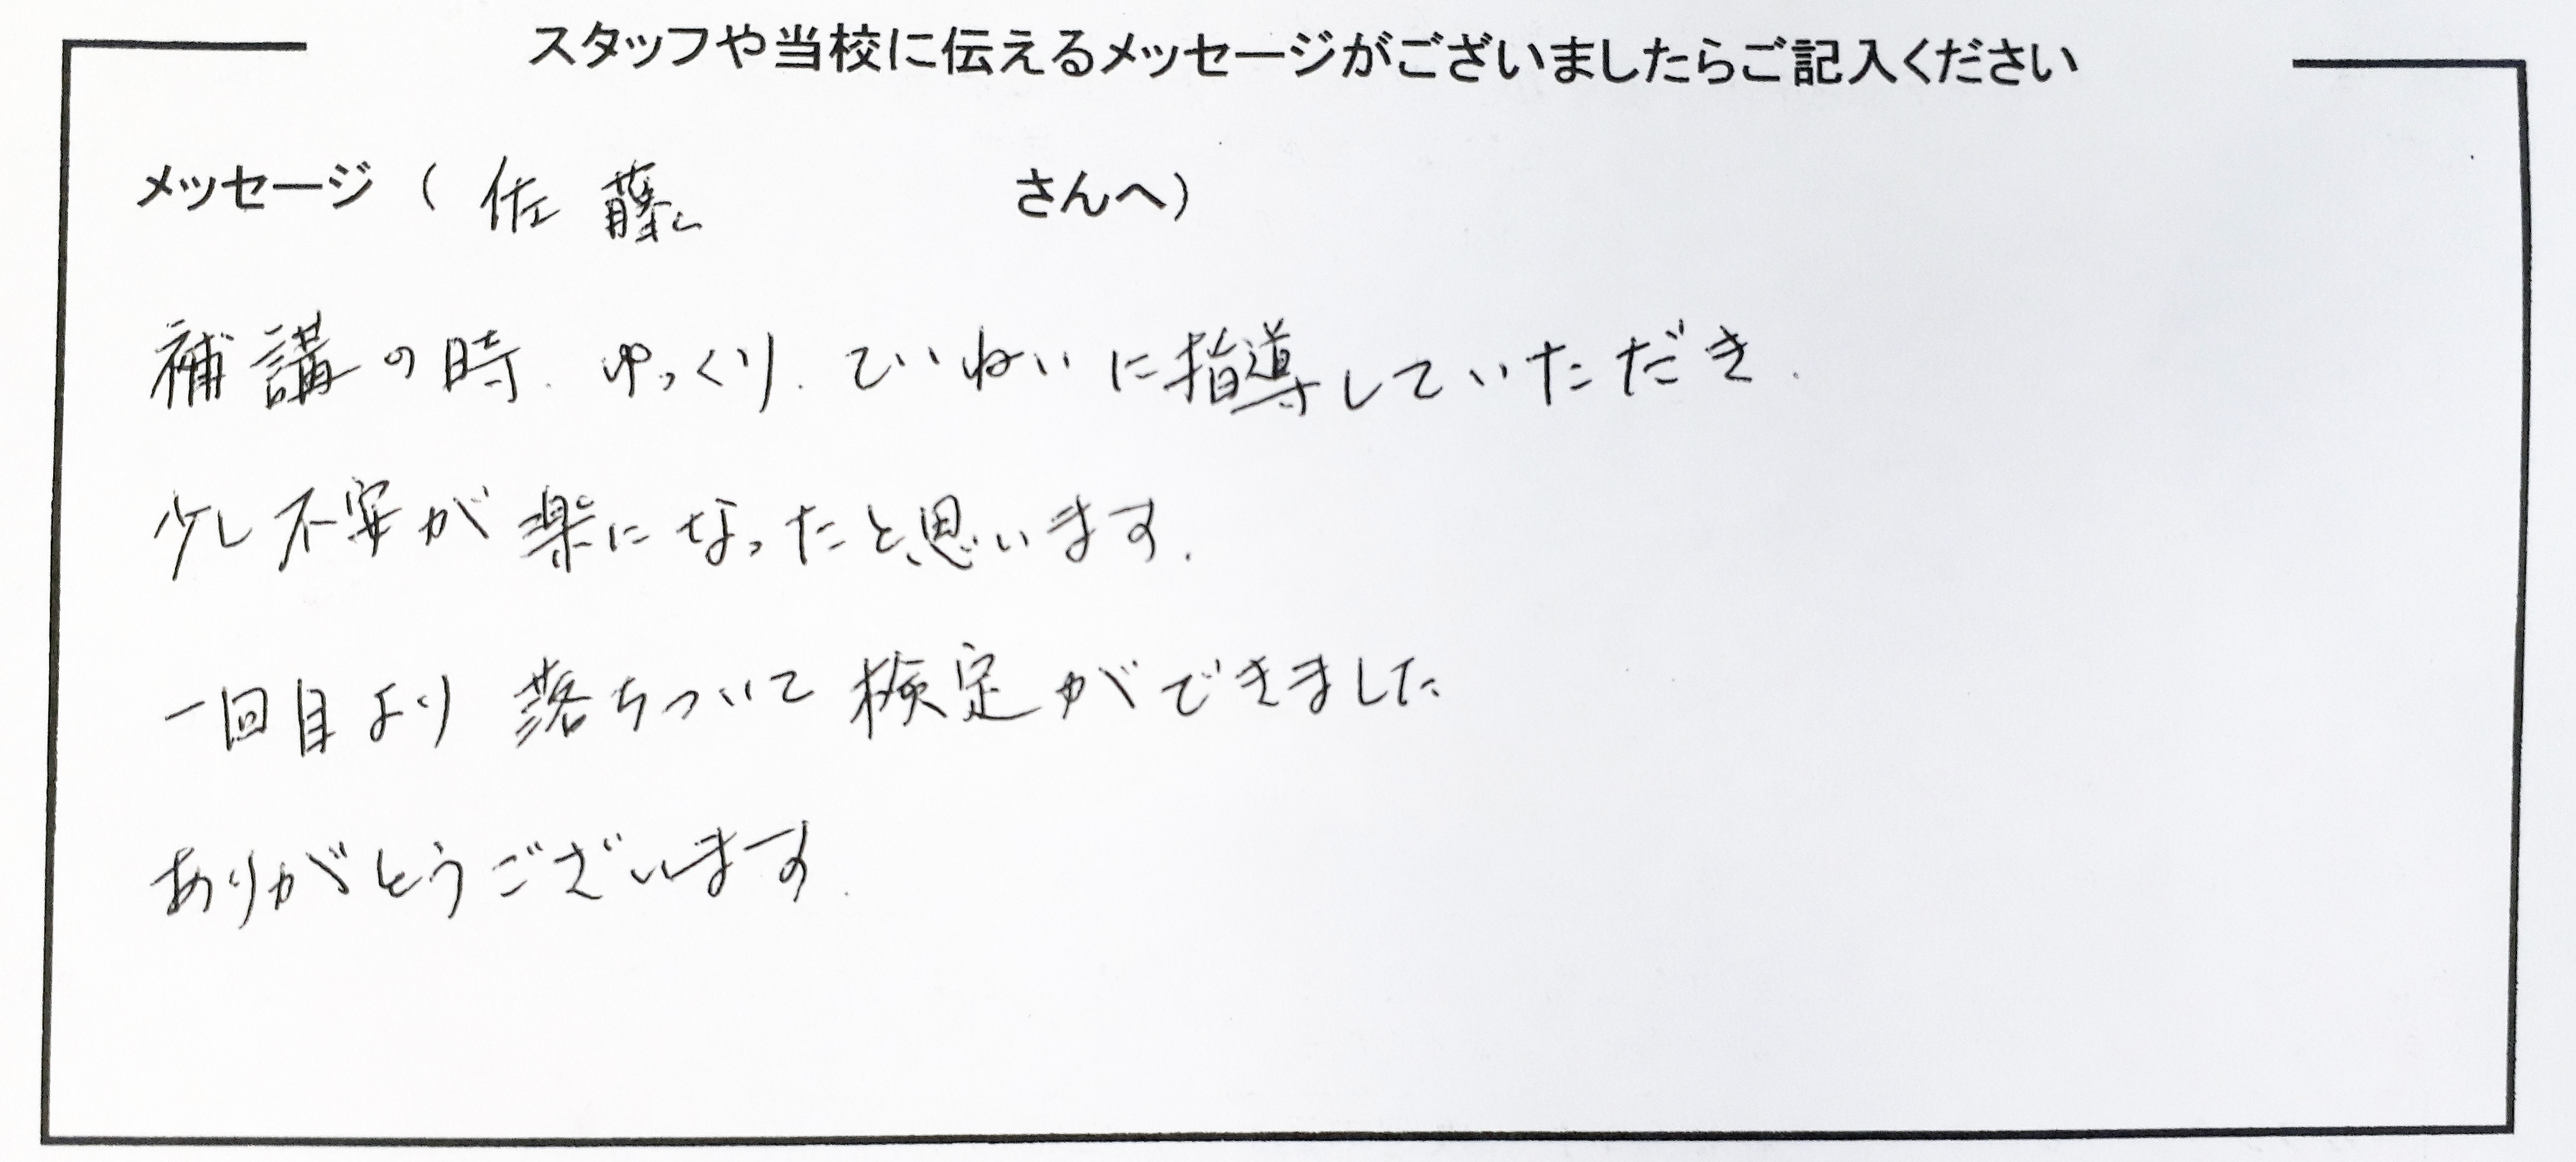 スタッフや当校に伝えるメッセージがございましたらご記入ください
メッセージ（ 佐藤 さんへ）
補講の時、ゆっくり、ていねいに指導していただき、
少し不安が楽になったと思います。
一回目より落ちついて検定ができました
ありがとうございます。